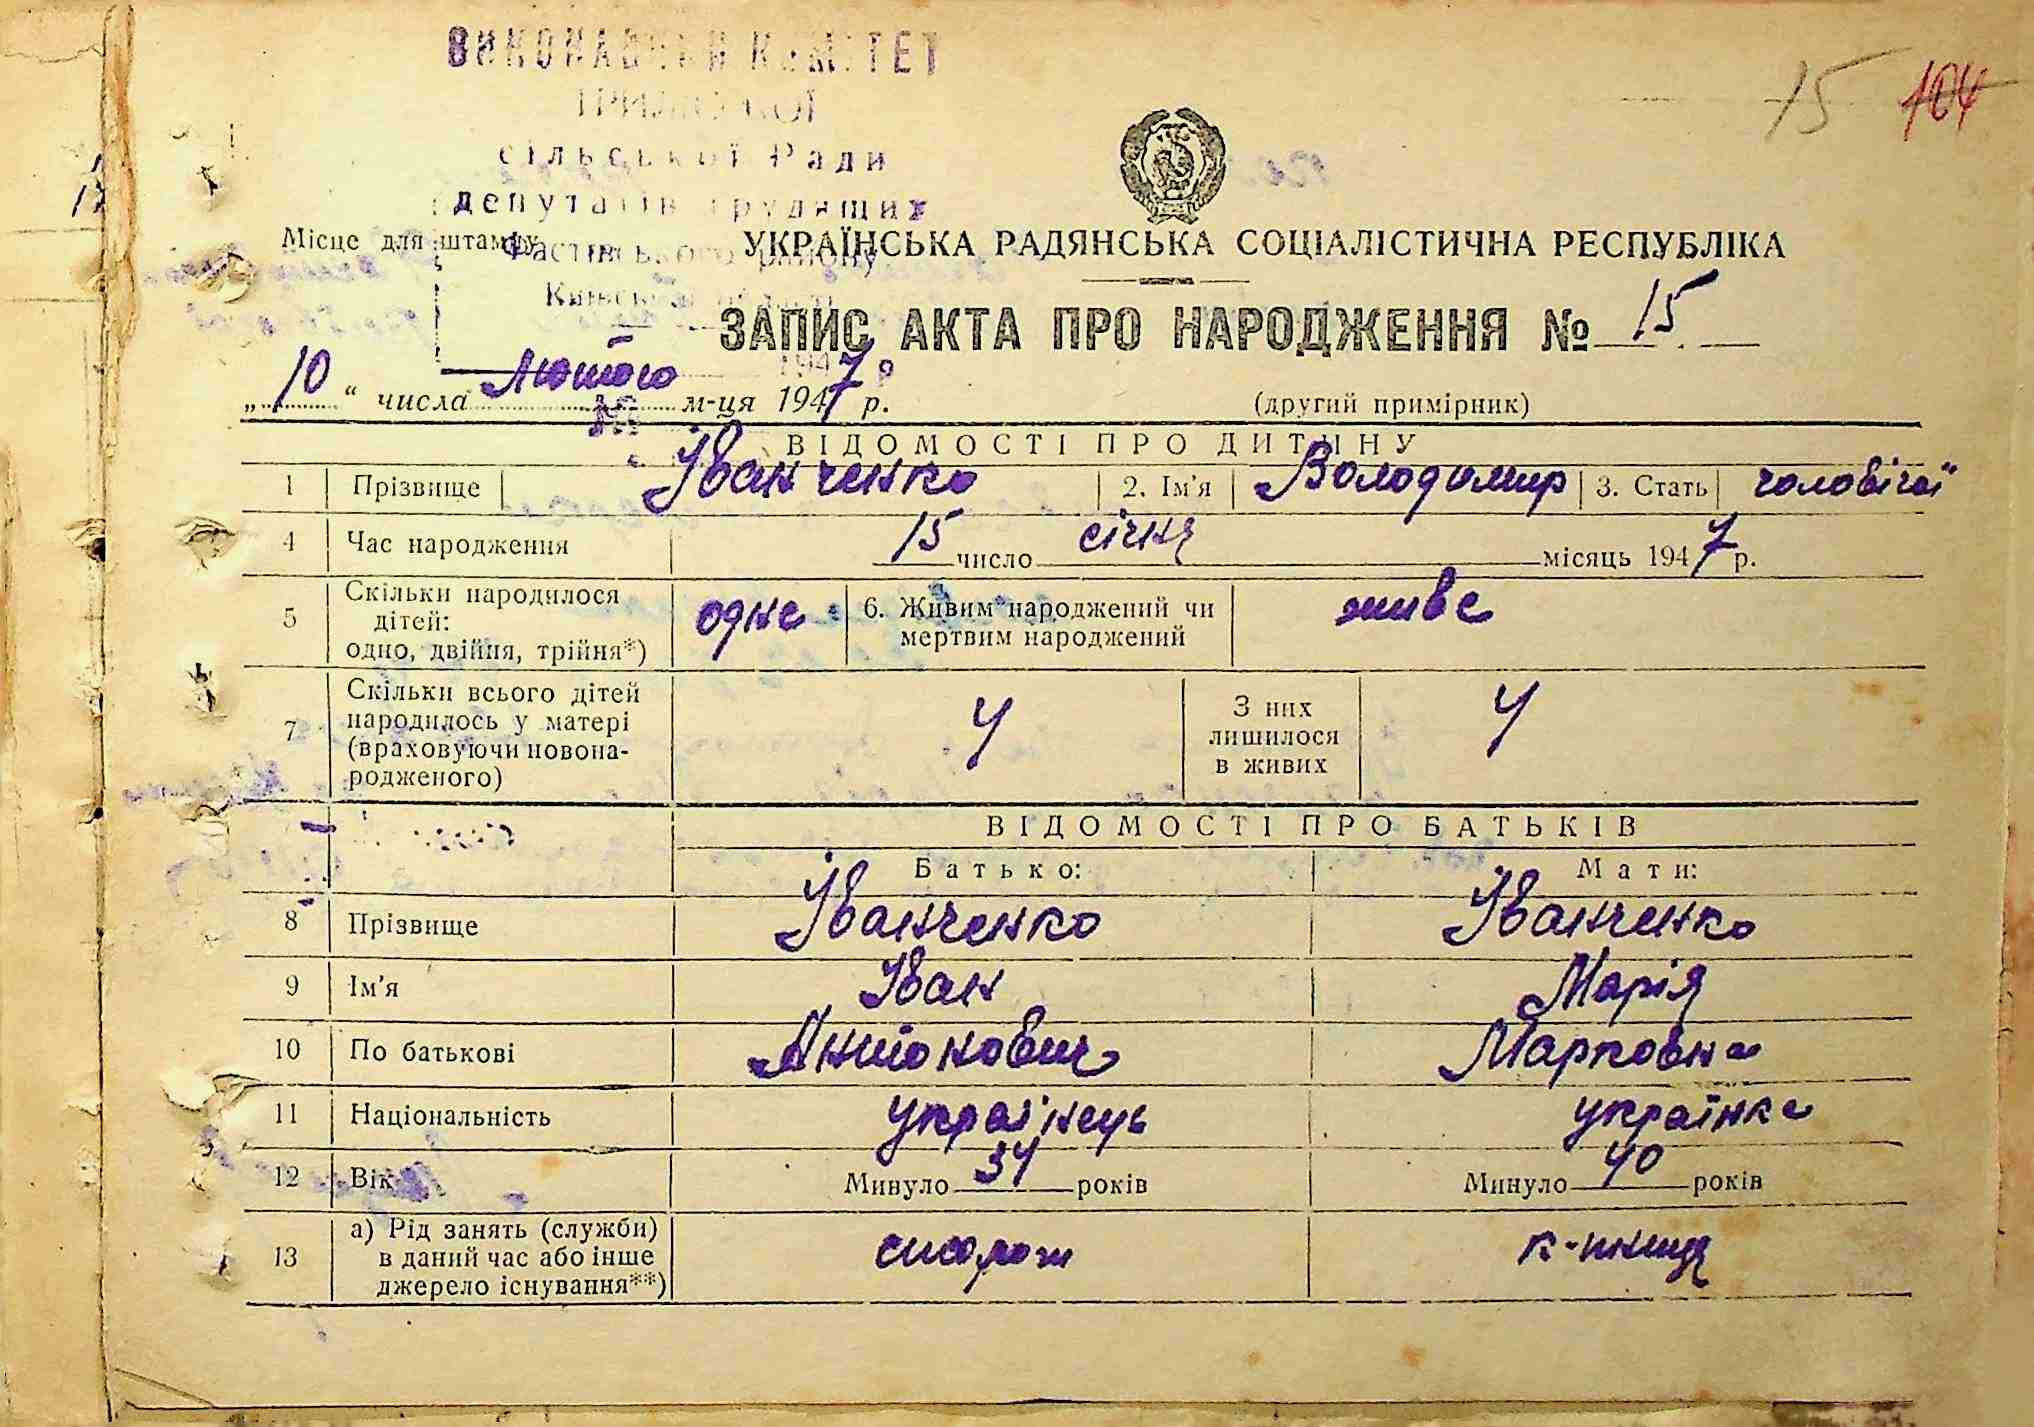 ВИКОНАВЧИЙ КОМІТЕТ
сільської Ради
депутатів трудящих
Фастівського району
Київської області
15 104
Місце для штампу
УКРАЇНСЬКА РАДЯНСЬКА СОЦІАЛІСТИЧНА РЕСПУБЛІКА
ЗАПИС АКТА ПРО НАРОДЖЕННЯ № 15
1947 р
„10“ числа лютого м-ця 1947 р.
(другий примірник)
ВІДОМОСТІ ПРО ДИТИНУ
1 Прізвище Іванченко 2. Ім'я Володимир 3. Стать чоловічої
4 Час народження 15 число січня місяць 1947 р.
5 Скільки народилося
дітей:
одно, двійня, трійня*) одне 6. Живим народжений чи
мертвим народжений живе
7 Скільки всього дітей
народилось у матері
(враховуючи новона-
родженого) 4 З них
лишилося
в живих 4
ВІДОМОСТІ ПРО БАТЬКІВ
Батько: Мати:
8 Прізвище Іванченко Іванченко
9 Ім'я Іван Марія
10 По батькові Антонович Марковна
11 Національність українець українка
12 Вік Минуло 34 років Минуло 40 років
13 а) Рід занять (служби)
в даний час або інше
джерело існування**) сторож к-пниця